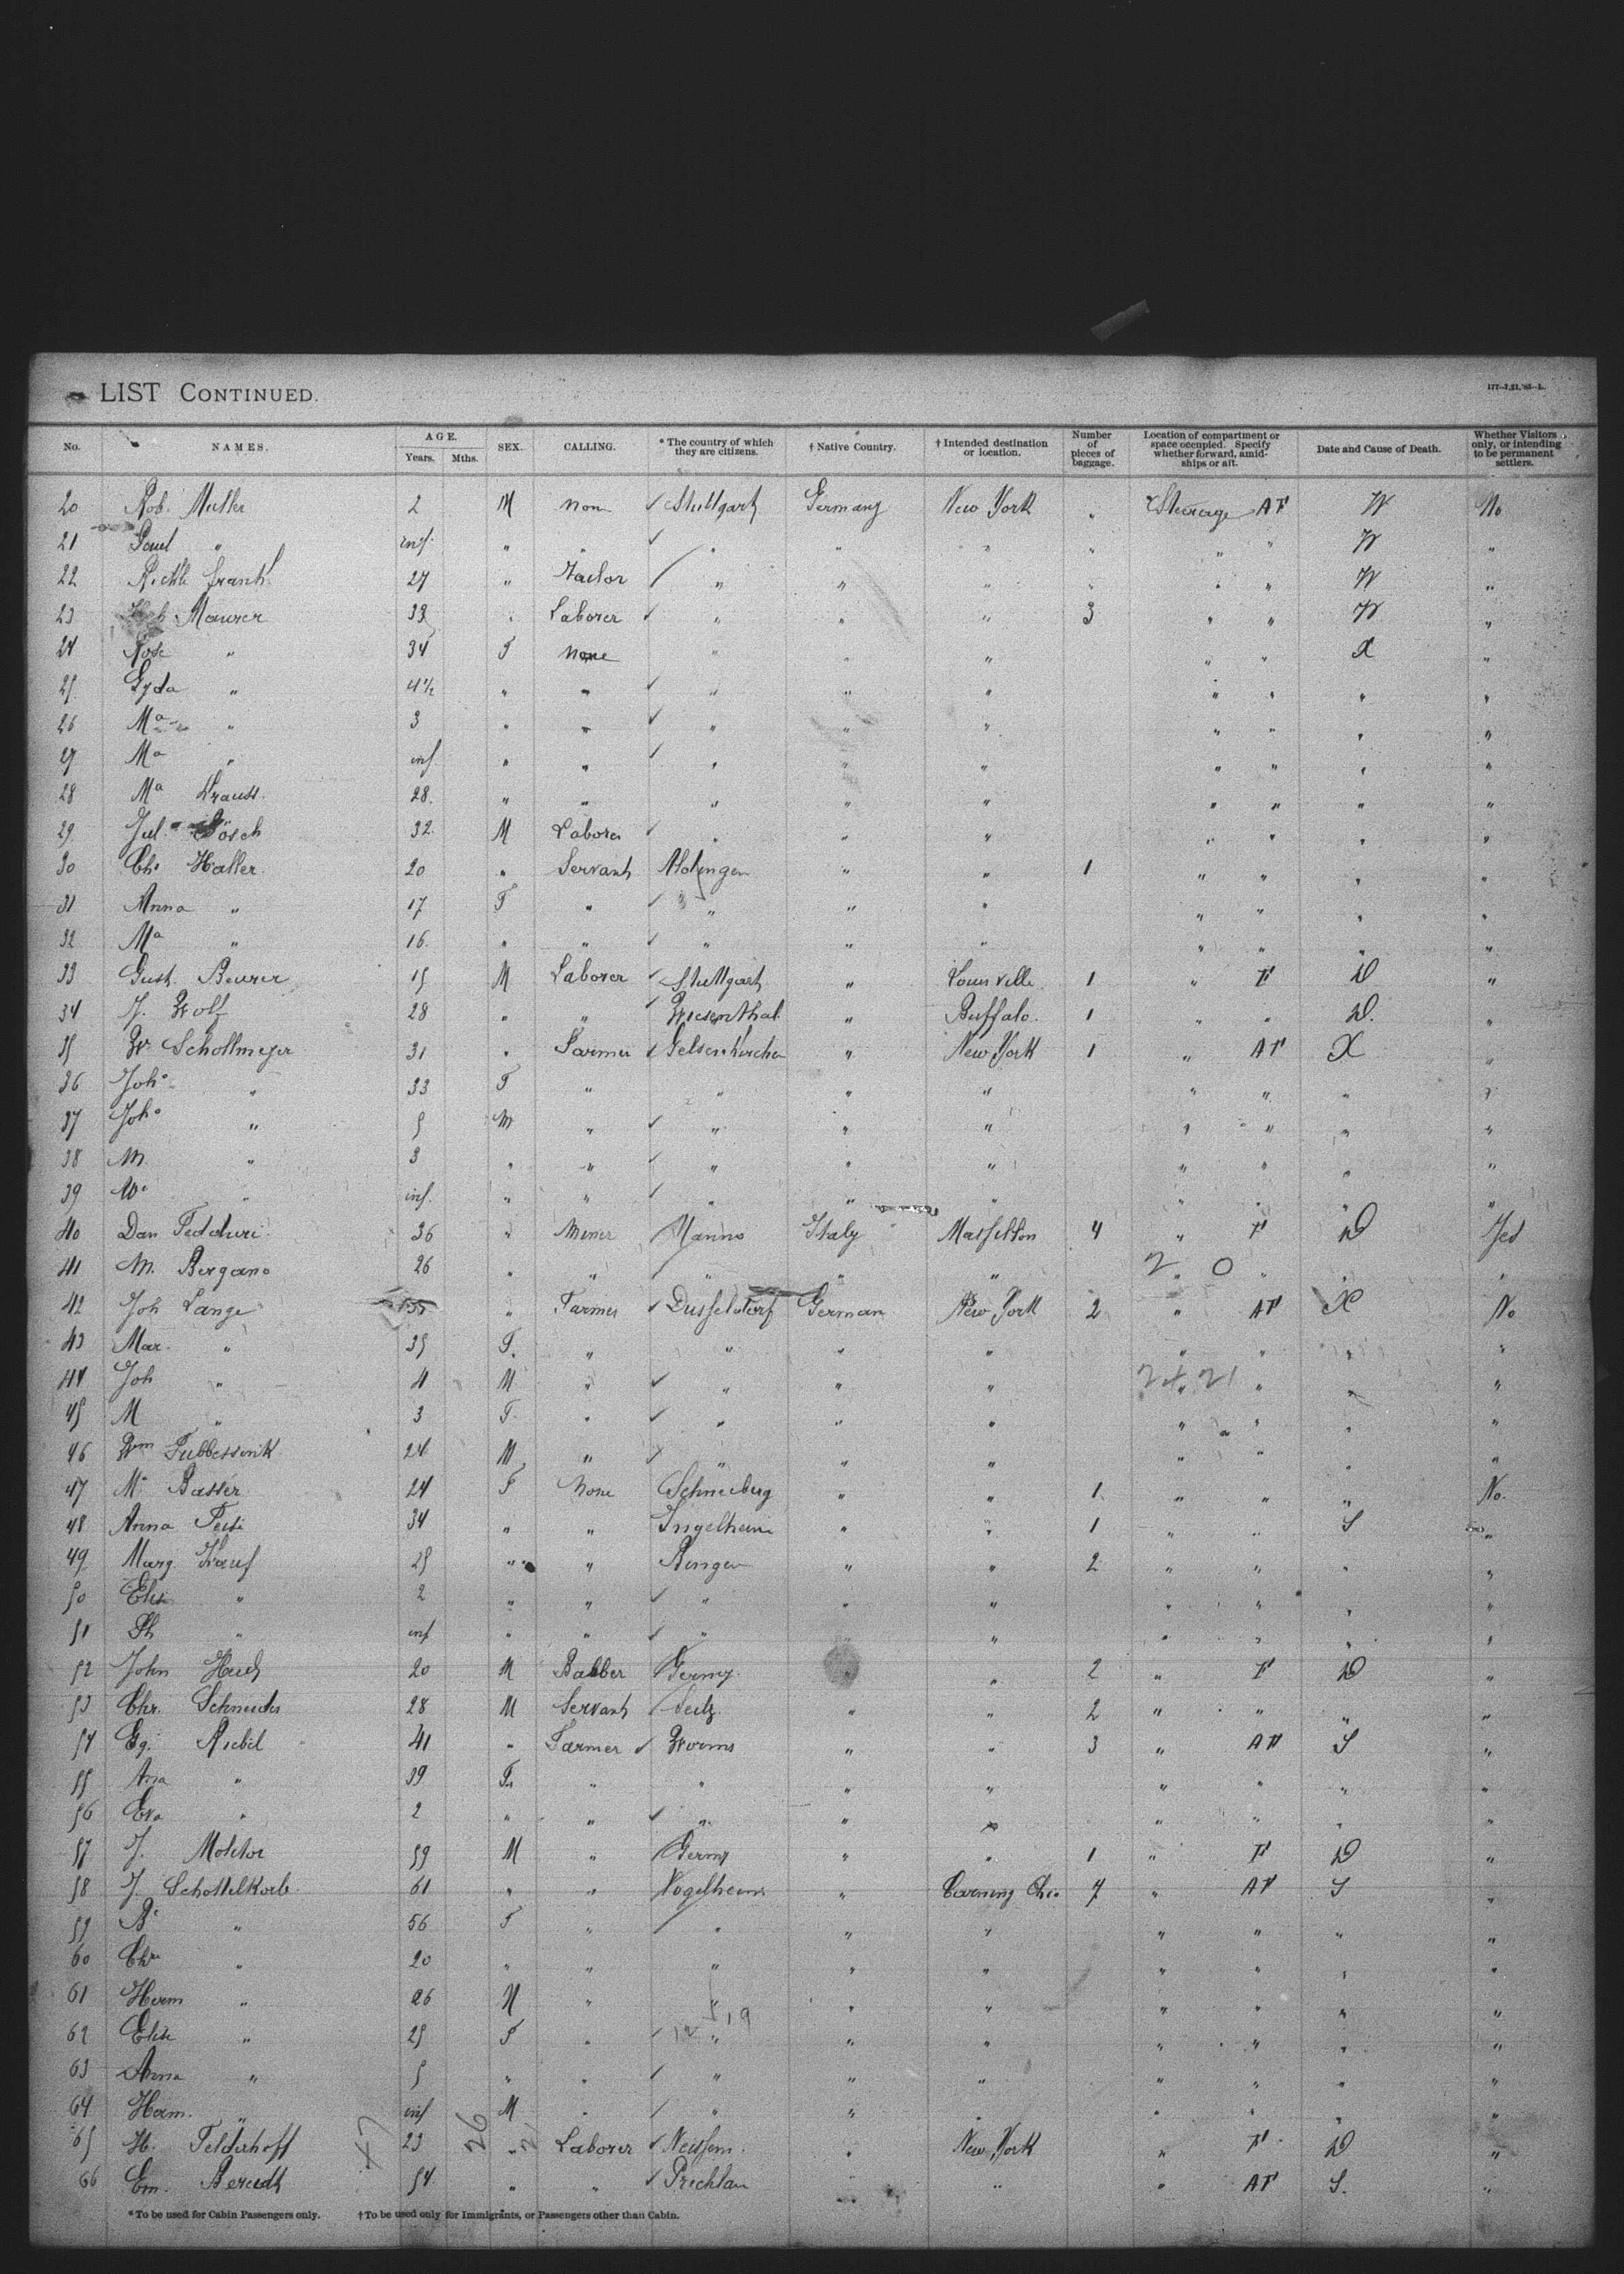 LIST CONTINUED.
177-7,21,'85-L.
No. NAMES. AGE. Years. Mths. SEX. CALLING. * The country of which they are citizens. † Native Country. † Intended destination or location. Number of pieces of baggage. Location of compartment or space occupied. Specify whether forward, amidships or aft. Date and Cause of Death. Whether Visitors only, or intending to be permanent settlers.
20 Rob. Muller 2 M non ✓ Stuttgart Germany New York " Steerage AF W No
21 Paul " inf. " " ✓ " " " " " " W "
22 27 " Tailor / " " " " " " W "
23 Maurer 33 " Laborer ✓ " " " 3 " " W "
24 Rose " 34 F None " " " " " X "
25 Lyda " 4½ " " ✓ " " " " " " "
26 Ma " 3 " " ✓ " " " " " " "
27 Ma " inf " " ✓ " " " " " " "
28 Ma Krauss 28. " " " " " " " " "
29 Jul. Bösch 32. M Laborer ✓ " " " " " " "
30 Chr Haller 20 " Servant " " 1 " " " "
31 Anna " 17 F " ✓ " " " " " " "
32 Ma " 16 " " ✓ " " " " " " "
33 Gust. Beurer 15 M Laborer ✓ Stuttgart " Louisville 1 " F D "
34 J. Wolf 28 " " ✓ Wiesenthal " Buffalo. 1 " " D. "
35 W. Schollmeyer 31 " Farmer ✓ Gelsenkirchen " New York 1 " AF X "
36 Joh. " 33 F " " " " " " " "
37 Joh. " 5 M " ✓ " " " " " " "
38 M. " 3 " " ✓ " " " " " " "
39 W. " inf. " " ✓ " " " " " " "
40 Dan 36 " Miner Italy Massillon 4 " F D Yes
41 M. Bergano 26 " " " " " 2 0 " " "
42 Joh Lange 35 " Farmer ✓ Dusseldorf German New York 2 " AF X No
43 Mar. " 35 F. " " " " " " " "
44 Joh " 4 M " ✓ " " " 24 21 " " "
45 M " 3 F. " ✓ " " " " " " "
46 Wm Tubbessink 24 M " ✓ " " " " " " "
47 M. Basser 24 F None Schneeberg " " 1 " " " No.
48 Anna 34 " " Ingelheim " " 1 " " S "
49 Marg. 25 " " Bingen " " 2 " " " "
50 Elise " 2 " " ✓ " " " " " " "
51 Ph " inf " " ✓ " " " " " " "
52 John 20 M Babber Germy. " " 2 " F D "
53 Chr. Schneider 28 M Servant / " " 2 " " " "
54 Gg. Riebel 41 " Farmer ✓ Worms " " 3 " AF S "
55 Ana " 39 F. " " " " " " " "
56 Eva " 2 " " ✓ " " " " " " "
57 J. Molitor 59 M " Germy " " 1 " F D "
58 J. Schottelkorb 61 " " Vogelheim " Corning Ohio 7 " AF S "
59 " 56 F " / " " " " " " "
60 Chr " 20 " " " " " " " " "
61 Herm " 26 M " " " " " " " "
62 Elise " 25 F " ✓ 12 5 19 " " " " " " "
63 Anna " 5 " " ✓ " " " " " " "
64 Herm. " inf M " / " " " " " " "
65 H. Felderhoff 23 " Laborer ✓ " New York " F D "
66 Em. Berendt 54 " " ✓ " " AF S. "
47 26 2
*To be used for Cabin Passengers only. †To be used only for Immigrants, or Passengers other than Cabin.